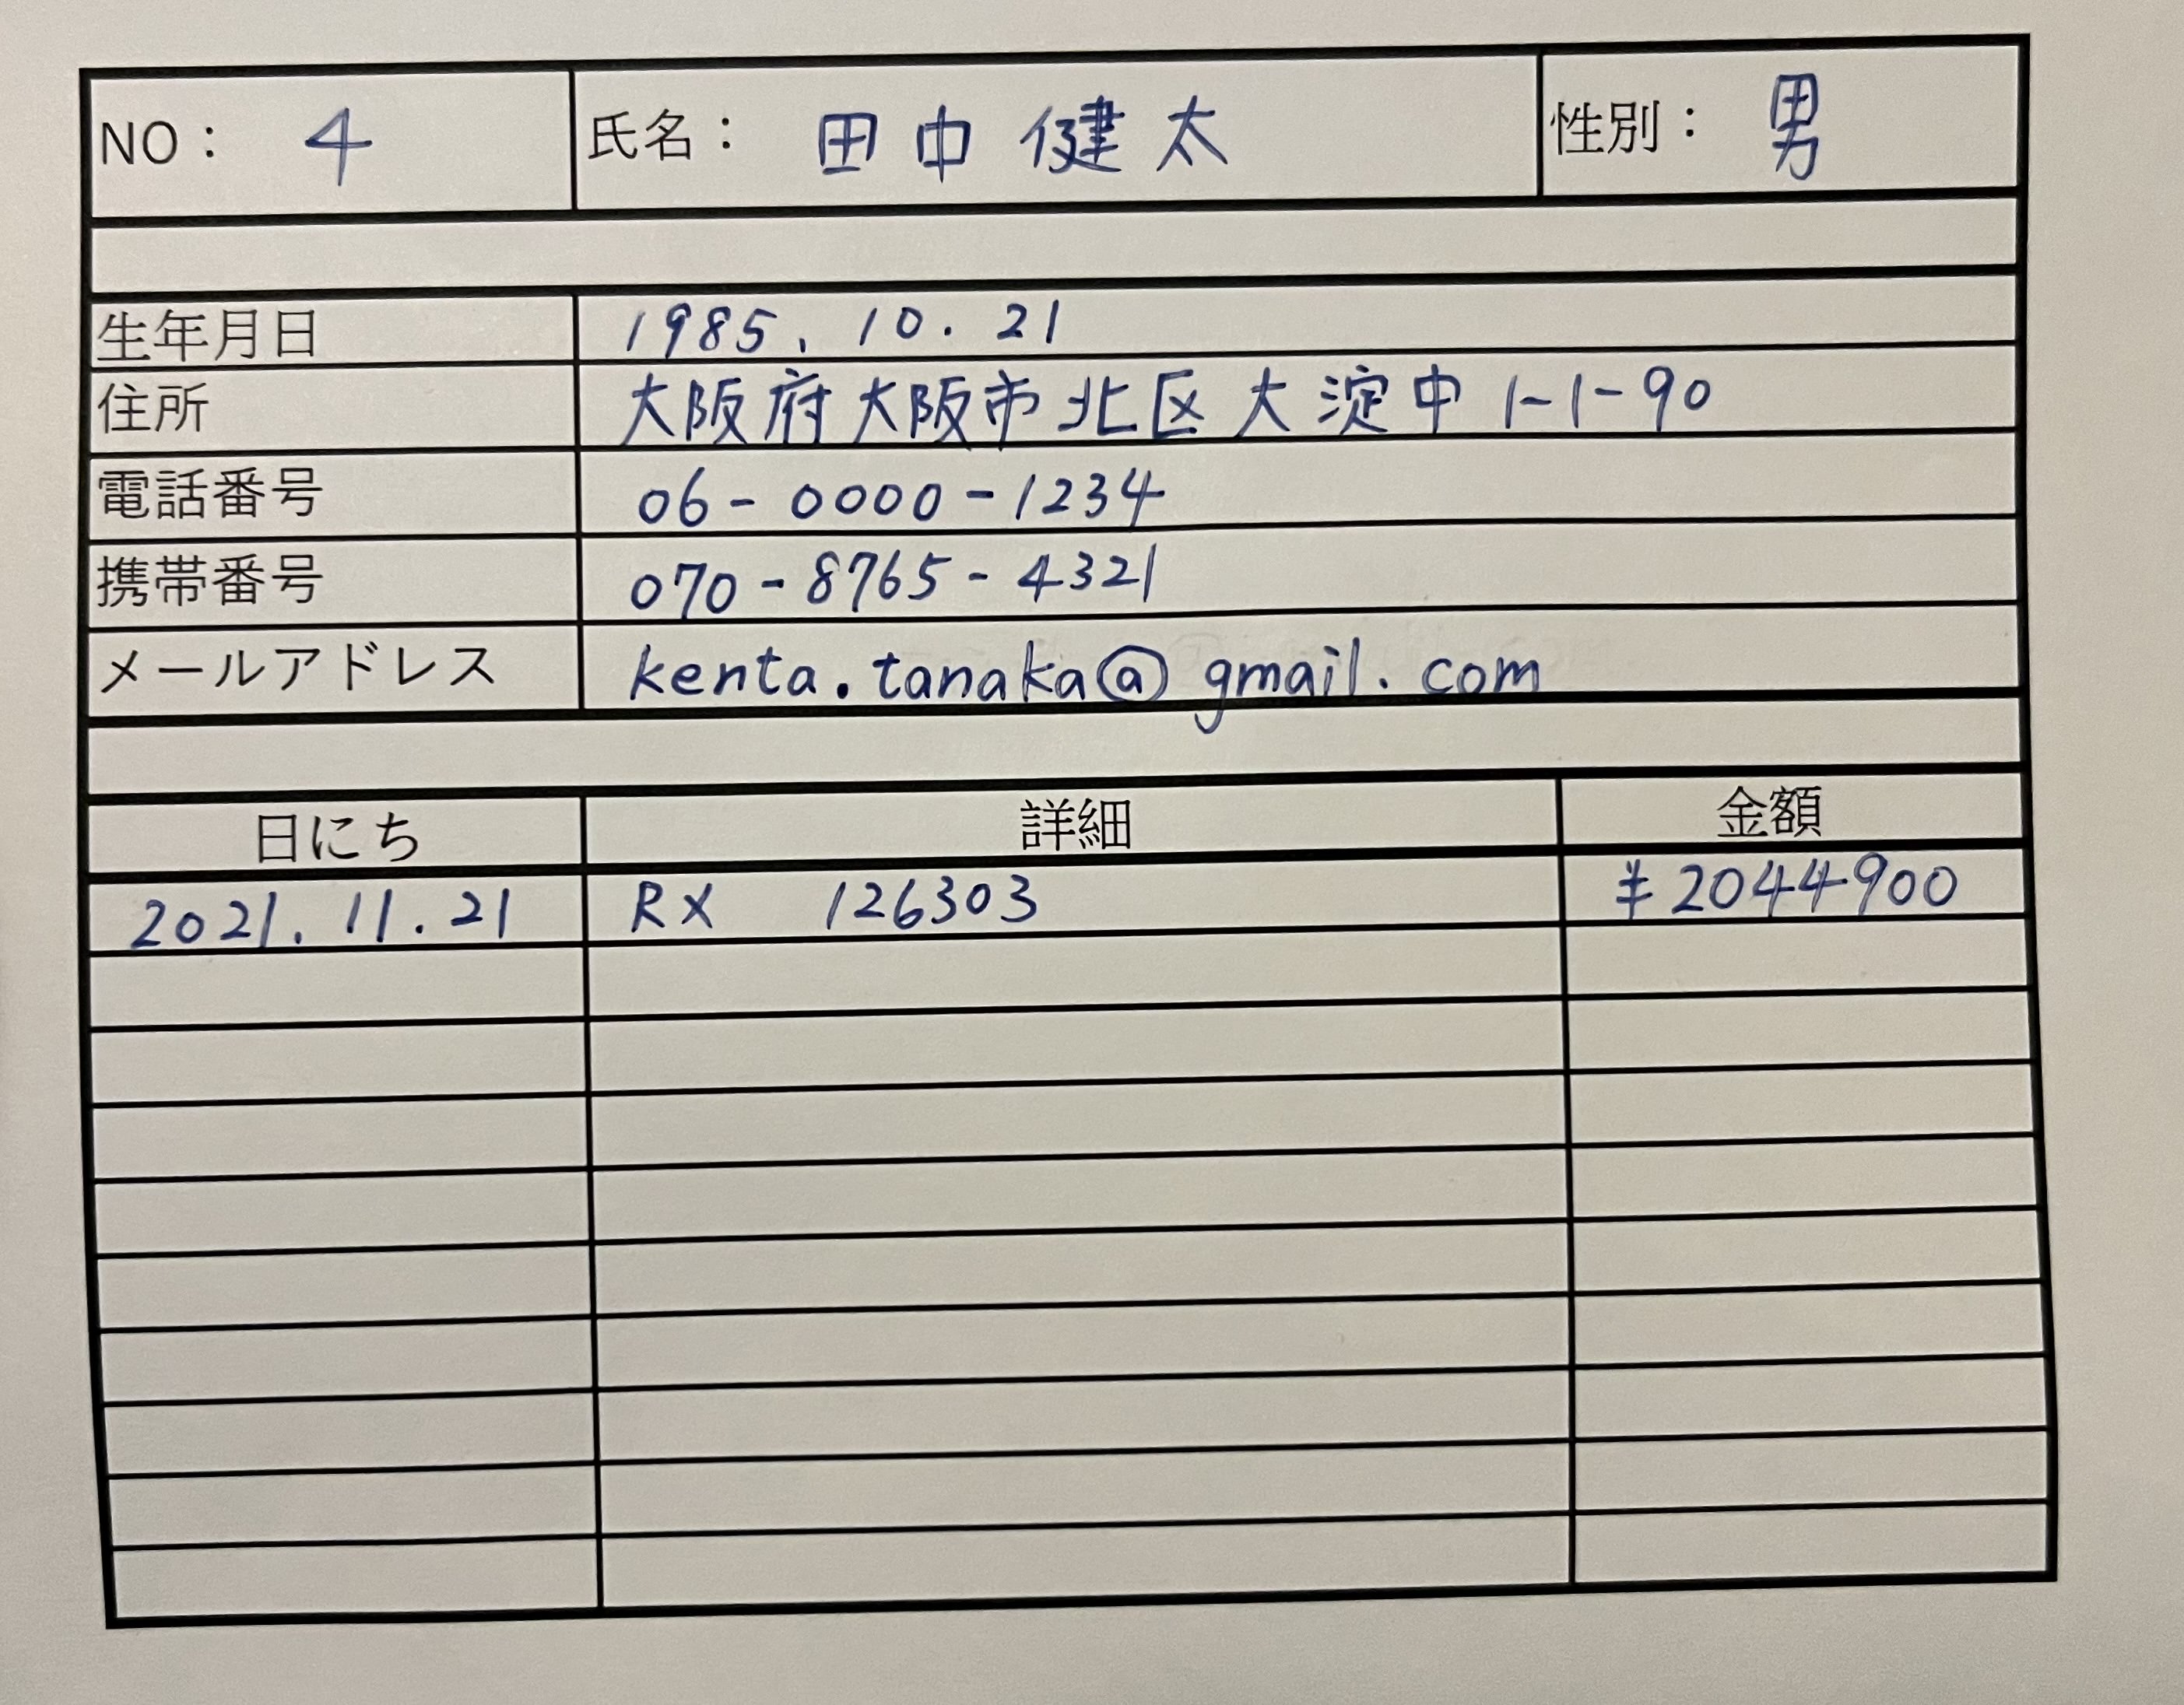 NO： 4 氏名： 田中健太 性別： 男
生年月日 1985. 10. 21
住所 大阪府大阪市北区大淀中1-1-90
電話番号 06-0000-1234
携帯番号 070-8765-4321
メールアドレス kenta.tanaka@gmail.com
日にち 詳細 金額
2021.11.21 RX 126303 ¥2044900